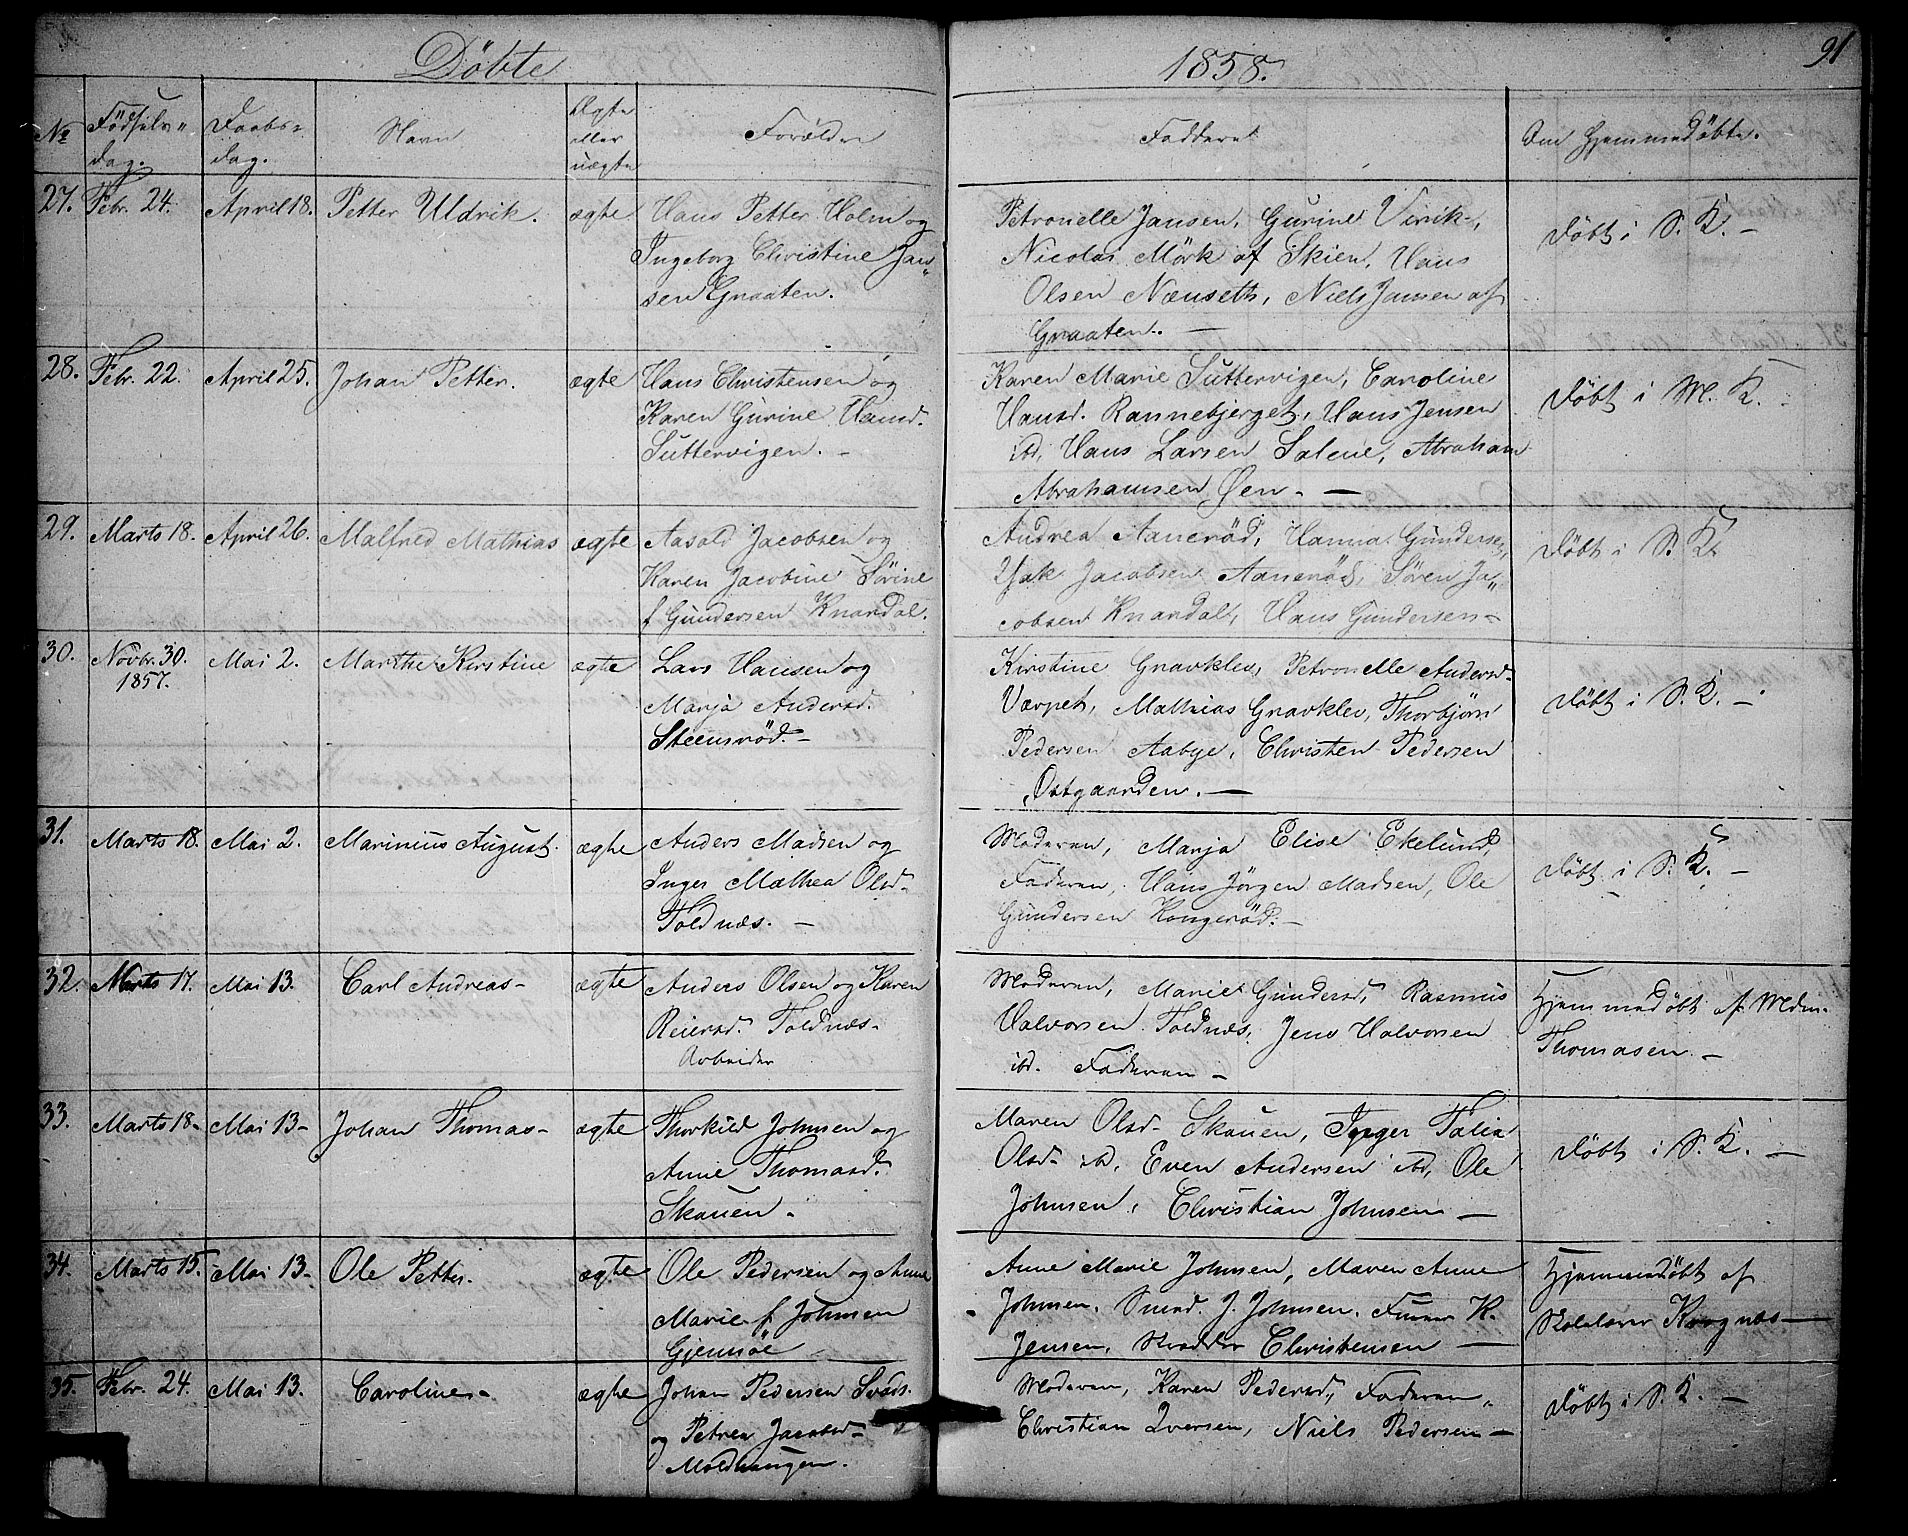 Döbte 1858. 91
No Födsels- dag. Daabs- dag. Navn Ægte eller uægte Forældre Faddere Om Hjemmedöbte.
27. Febr. 24. April 18. Petter Uldrik. ægte Hans Petter Holm og
Ingeborg Christine Jan„
sen Graaten.
Petronelle Jansen, Gurine Virik,
Nicolai Mörk af Skien, Hans
Olsen Næuseth, Niels Jansen af
Graaten. —
Döbt i S. K. —
28. Febr. 22. April 25. Johan Petter. ægte Hans Christensen og
Karen Gurine Hansd.
Suttervigen. –
Karen Marie Suttervigen, Caroline
Hansd. Rannebjerget, Hans Jensen
ibd, Hans Larsen Salene, Abraham
Abrahamsen Øen. —
Döbt i M. K. –
29. Marts 18. April 26. Malfred Mathias ægte Aasold Jacobsen og
Karen Jacobine Sörine
f Gundersen Knardal.
Andrea Aaneröd, Hanna Gunderse,
Isak Jacobsen Aaneröd, Sören Ja„
cobsen Knardal, Hans Gundersen –
Döbt i S. K.
30. Novbr. 30. 1857. Mai 2. Marthe Kirstine ægte Lars Hansen og
Marja Andersd.
Steensröd. –
Kirstine Gravklev, Petronelle Andersd–
Værpet, Mathias Gravklev, Thorbjörn
Pedersen Aabye, Christen Pedersen
Ostgaarden. —
Döbt i S. K. –
31. Marts 18. Mai 2. Marinius August. ægte Anders Madsen og
Inger Mathea Olsd–
Toldnæs. –
Moderen, Marja Elise Ekelund,
Faderen, Hans Jörgen Madsen, Ole
Gundersen Kongeröd. –
Döbt i S. K. –
32. Marts 17. Mai 13. Carl Andreas– ægte Anders Olsen og Karen
Reiersd. Toldnæs–
Arbeider
Moderen, Marie Gundersd, Rasmus
Halvorsen Toldnæs, Jens Halvorsen
ibd. Faderen –
Hjemmedöbt af Mdm.
Thomasen –
33. Marts 18– Mai 13– Johan Thomas– ægte Thorkild Johnsen og
Anne Thomasd.
Skauen –
Maren Olsd– Skauen, Inger Talia
Olsd– ibd, Even Andersen ibd, Ole
Johnsen, Christian Johnsen –
Döbt i S. K. –
34. Marts 15. Mai 13– Ole Petter. ægte Ole Pedersen og Anne
Marie f Johnsen
Gjemsöe –
Anne Marie Johnsen, Maren Anne
Johnsen, Smed. J. Johnsen, K.
Jensen, Christensen —
Hjemmedöbt af
Krognæs –
35. Febr. 24. Mai 13. Caroline– ægte Johan Pedersen
og Petrea Jacobsd–
Moldhaugen.
Moderen, Karen Pedersd, Faderen,
Christian Iversen, Niels Pedersen –
Döbt i S. K. –